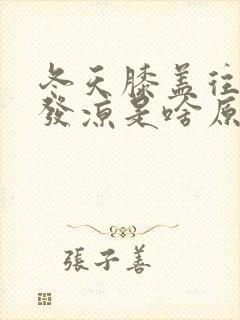 冬天膝盖往
發凉是啥原
張子善